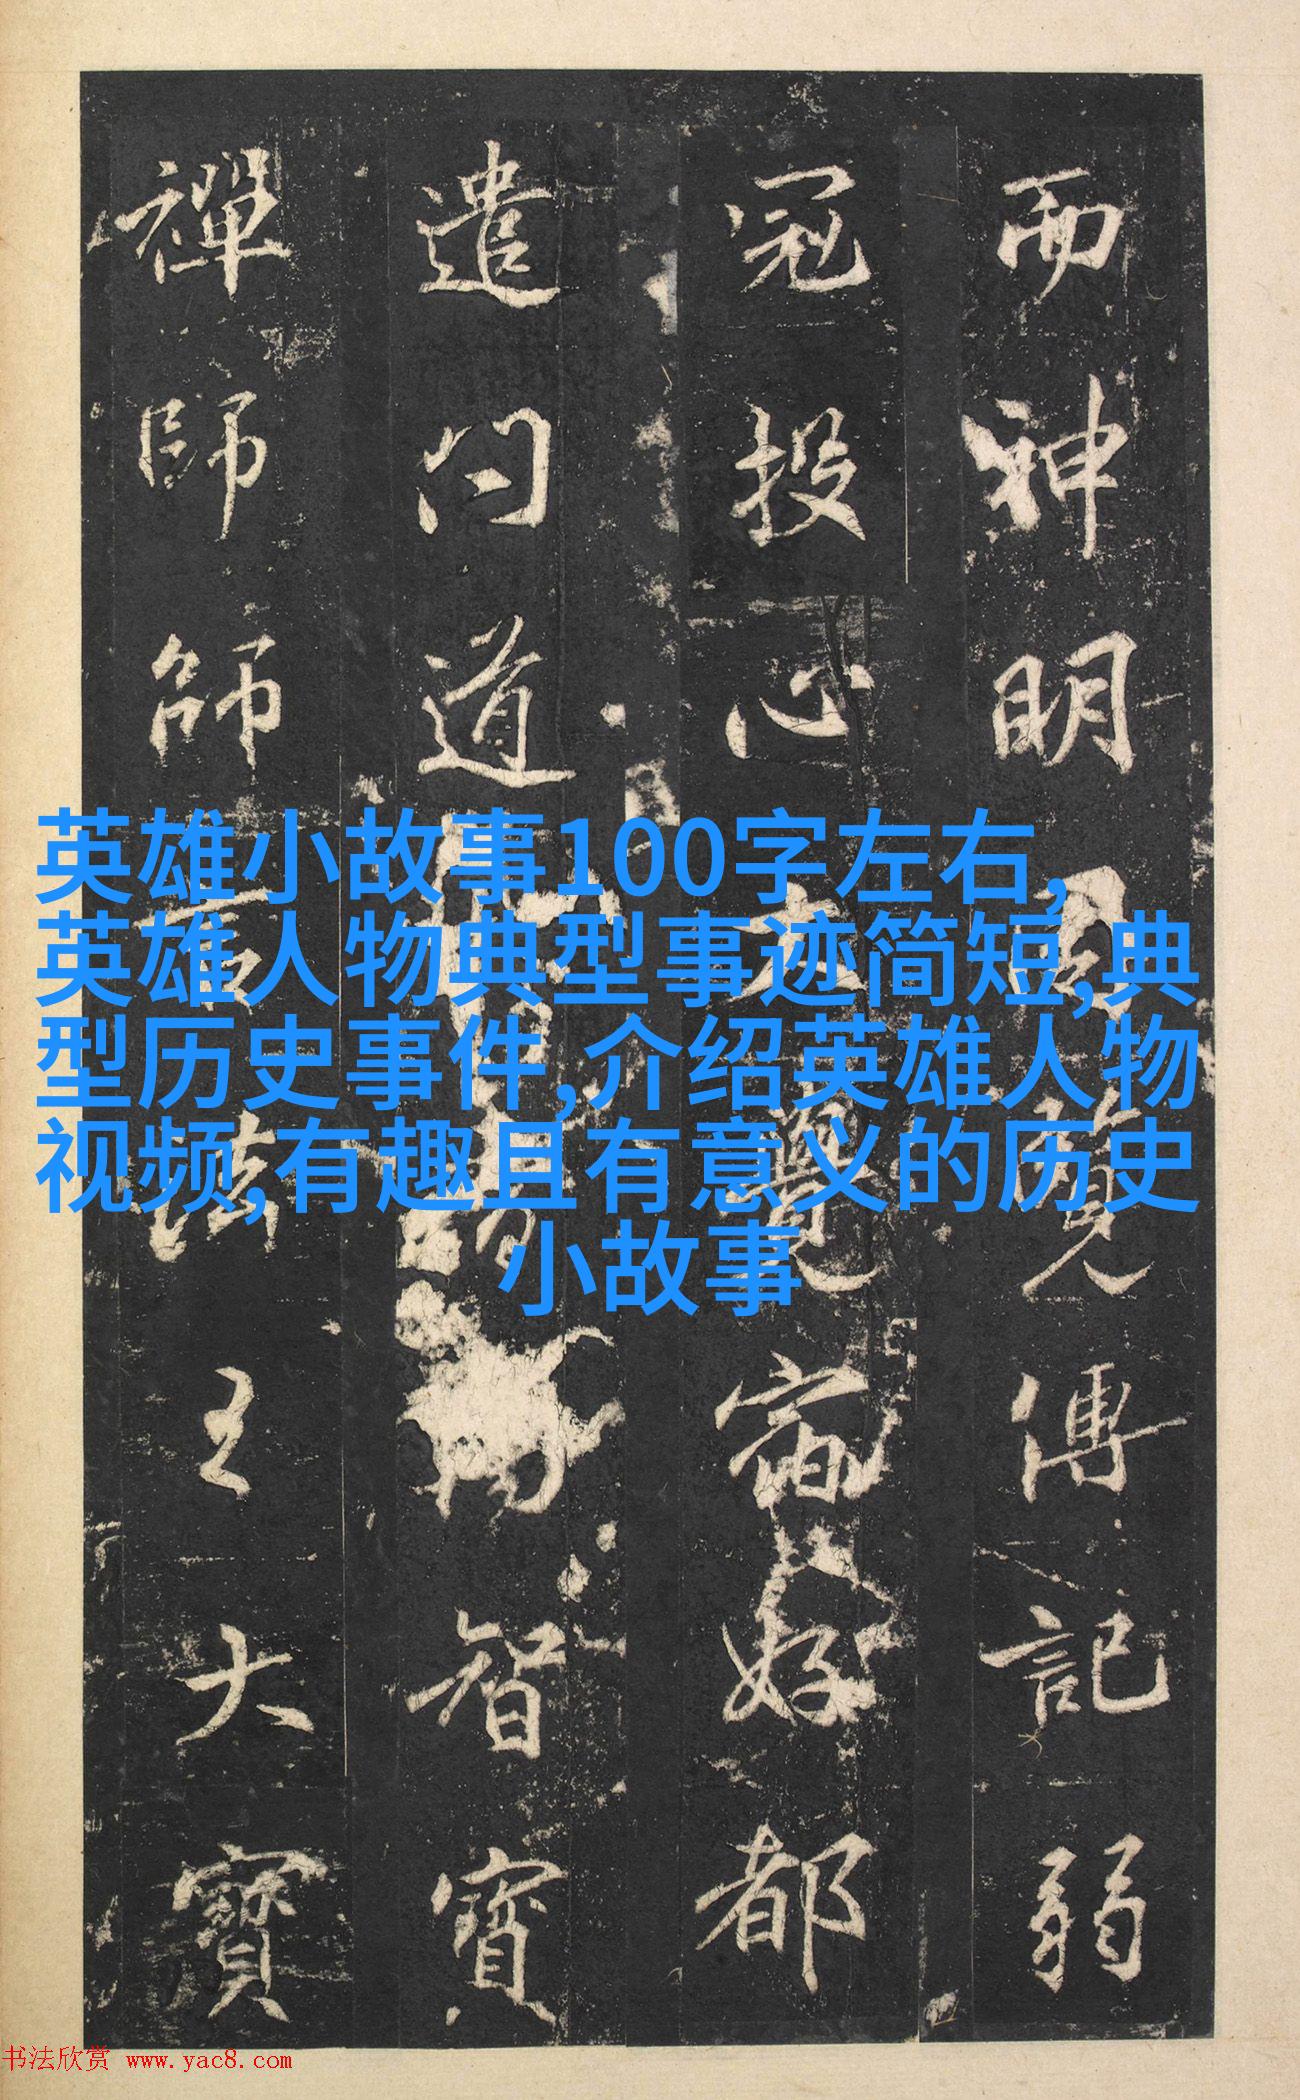 而神明　　覽傳記弱
冠投心　　　　好都
遣問道　　　智寶
禪師師　　　王大寶
英雄小故事100字左右,
英雄人物典型事迹简短,典
型历史事件,介绍英雄人物
视频,有趣且有意义的历史
小故事
书法欣赏 www.yac8.com